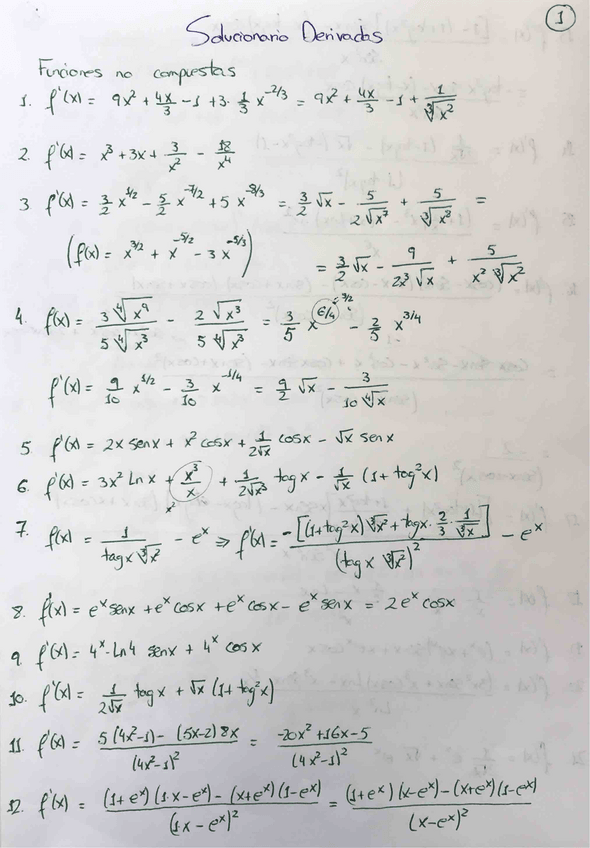 1
Solucionario Derivadas
Funciones no compuestas
1. f'(x) = 9x² + 4x/3 - 1 + 3 · 1/3 x^(-2/3) = 9x² + 4x/3 - 1 + 1/∛x²
2. f'(x) = x³ + 3x + 3/x² - 18/x⁴
3 f'(x) = 3/2 x^(1/2) - 5/2 x^(-7/2) + 5 x^(-8/3) = 3/2 √x - 5/(2√x⁷) + 5/∛x⁸ =
(f(x) = x^(3/2) + x^(-5/2) - 3x^(-5/3)) = 3/2 √x - 9/(2x³√x) + 5/(x² ∛x²)
4. f(x) = 3 ∜x⁹/(5 ∜x³) - 2 √x³/(5 ∜x³) = 3/5 x^(6/4) 3/2 - 2/5 x^(3/4)
f'(x) = 9/10 x^(1/2) - 3/10 x^(-1/4) = 9/2 √x - 3/(10 ∜x)
5. f'(x) = 2x senx + x² cosx + 1/(2√x) cosx - √x senx
6. f'(x) = 3x² Ln x + x³/x + 1/(2√x³) tagx - 1/√x (1+tag²x)
x²
7. f(x) = 1/(tagx ∛x²) - eˣ ⇒ f'(x) = -[(1+tag²x) ∛x² + tagx · 2/3 · 1/∛x]/(tagx ∛x²)² - eˣ
8. f'(x) = eˣ senx + eˣ cosx + eˣ cosx - eˣ senx = 2 eˣ cosx
9. f'(x) = 4ˣ · Ln4 senx + 4ˣ cosx
10. f'(x) = 1/(2√x) tagx + √x (1+tag²x)
11. f'(x) = (5(4x²-1) - (5x-2)8x)/(4x²-1)² = (-20x²+16x-5)/(4x²-1)²
12. f'(x) = ((1+eˣ)(1·x-eˣ) - (x+eˣ)(1-eˣ))/(1·x-eˣ)² = ((1+eˣ)(x-eˣ) - (x+eˣ)(1-eˣ))/(x-eˣ)²